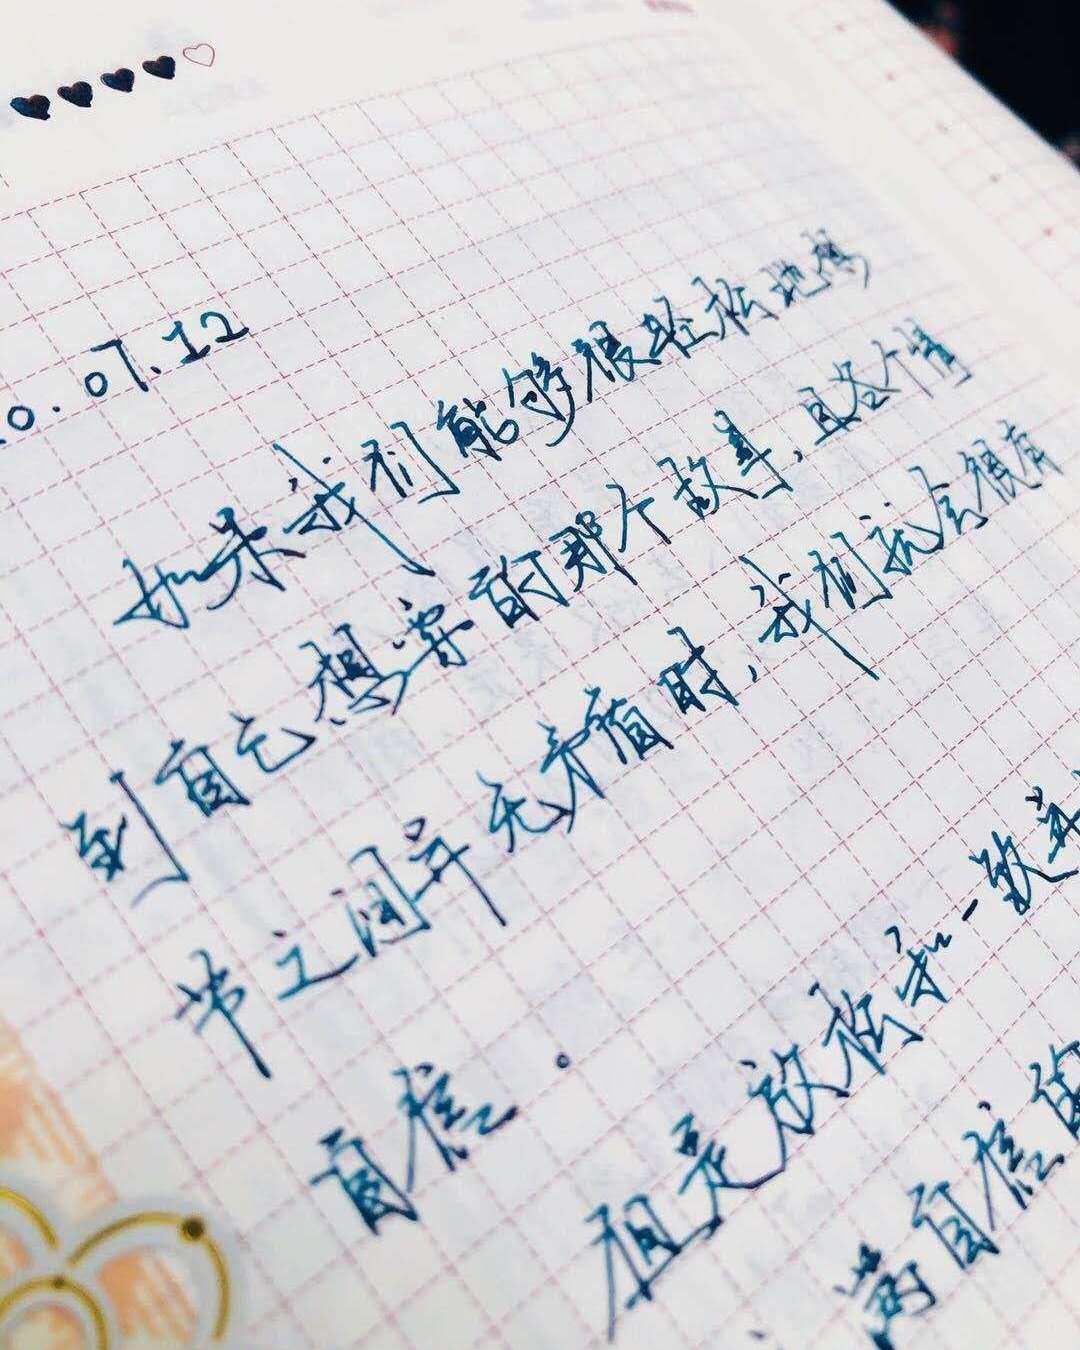 0.07.12
如果我们能够很轻松地搆
到自己想要的那个故事、且各个情
节之间并无矛盾时,我们就会很有
自信.
但是放松和一致并
萬自信的